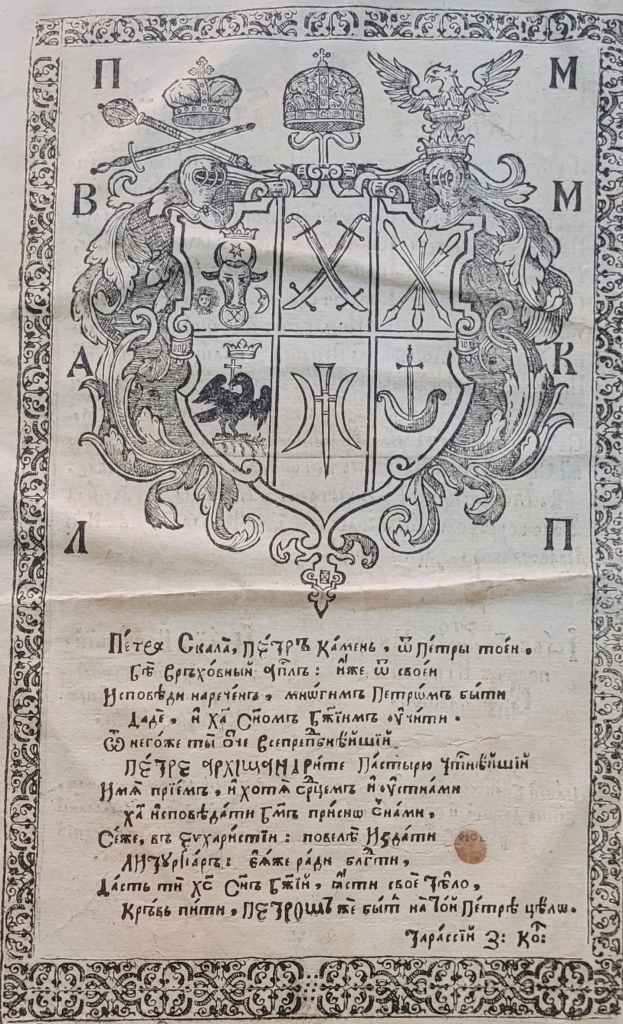 П М
В М
А К
Л П
Пе́тра Скала̀, ПЕ́ТРЪ Ка́мень, ѿ Пе́тры тоѐи,
Бѣ̀ Връхо́вный а҆пⷭ҇лъ: и҆́же, ѿ своеѝ
Исповѣди нарече́нъ, мнѡ́гимъ Петрѡ́мъ бы́ти
Дадѐ, и҆ Хⷭ҇а̀ Сн҃омъ Бж҃іимъ ᲂу҆чи́ти.
Ѿ него́же ты̀ Ѻ҆́ч҃е Всепрепⷣбнѣ́йшій
ПЕ́ТРЕ АРХІМАНДРИ́те Па́стырю Чⷭ҇тнѣ́йшій
И́мѧ прїе́мъ, и҆ хотѧ̀ срⷣцемъ и҆ ᲂу҆стна́ми
Хⷭ҇а̀ и҆сповѣ́дати Бг҃мъ при́снѡ съ на́ми,
Се́же, въ Еѵхарі́стїи: повелѣ̀ Изда́ти
ЛИТУРГІА́РЪ: є҆ѧ́же ра́ди блгⷣти,
Да́сть тѝ Хⷭ҇с Сн҃ъ Бж҃їй, ꙗ҆́сти своѐ Тѣ́ло,
Кръвь пи́ти, ПЕТРО́МЪ же бы́ти на То́й Пе́трѣ цѣ́лѡ.
Тара́ссїй З: Ко: